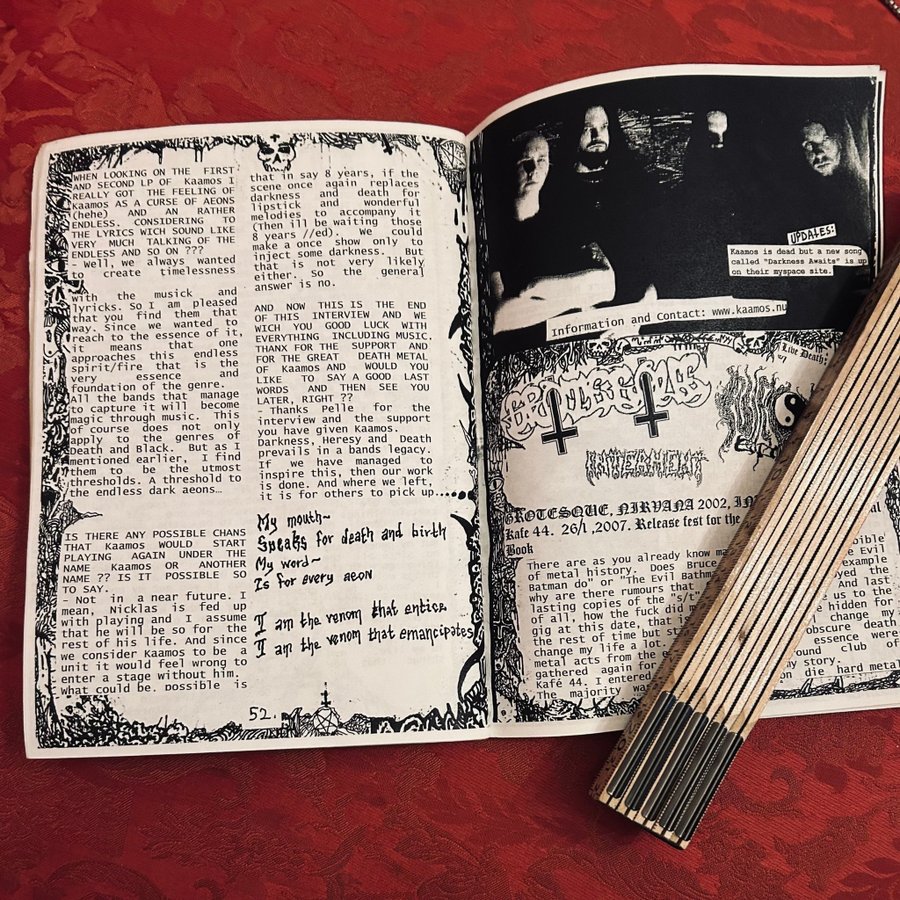 WHEN LOOKING ON THE FIRST
AND SECOND LP OF Kaamos I
REALLY GOT THE FEELING OF
Kaamos AS A CURSE OF AEONS
(hehe) AND AN RATHER
ENDLESS. CONSIDERING TO
THE LYRICS WICH SOUND LIKE
VERY MUCH TALKING OF THE
ENDLESS AND SO ON ???
- Well, we always wanted
to create timelessness
with the musick and
lyricks. So I am pleased
that you find them that
way. Since we wanted to
reach to the essence of it,
it means that one
approaches this endless
spirit/fire that is the
very essence and
foundation of the genre.
All the bands that manage
to capture it will become
magic through music. This
of course does not only
apply to the genres of
Death and Black. But as I
mentioned earlier, I find
them to be the utmost
thresholds. A threshold to
the endless dark aeons…
IS THERE ANY POSSIBLE CHANS
THAT Kaamos WOULD START
PLAYING AGAIN UNDER THE
NAME Kaamos OR ANOTHER
NAME ?? IS IT POSSIBLE SO
TO SAY.
- Not in a near future. I
mean, Nicklas is fed up
with playing and I assume
that he will be so for the
rest of his life. And since
we consider Kaamos to be a
unit it would feel wrong to
enter a stage without him.
what could be. possible is
that in say 8 years, if the
scene once again replaces
darkness and death for
lipstick and wonderful
melodies to accompany it
(Then ill be waiting those
8 years //ed). We could
make a once show only to
inject some darkness. But
that is not very likely
either. so the general
answer is no.
AND NOW THIS IS THE END
OF THIS INTERVIEW AND WE
WICH YOU GOOD LUCK WITH
EVERYTHING INCLUDING MUSIC.
THANX FOR THE SUPPORT AND
FOR THE GREAT DEATH METAL
OF Kaamos AND WOULD YOU
LIKE TO SAY A GOOD LAST
WORDS AND THEN SEE YOU
LATER, RIGHT ??
- Thanks Pelle for the
interview and the support
you have given Kaamos.
Darkness, Heresy and Death
prevails in a bands legacy.
If we have managed to
inspire this, then our work
is done. And where we left,
it is for others to pick up......
My mouth~
Speaks for death and birth
My word~
Is for every aeon
I am the venom that entice
I am the venom that emancipates
52.
UPDATES:
Kaamos is dead but a new song
called "Darkness Awaits" is up
on their myspace site.
Information and Contact: www.kaamos.nu
Live Death:
GROTESQUE
INTERMENT
GROTESQUE, NIRVANA 2002, IN
Kafe 44. 26/1,2007. Release fest for the
Book
There are as you already know ma
of metal history. Does Bruce
Batman do" or "The Evil Bathma
why are there rumours that
lasting copies of the "s/t"
of all, how the fuck did m
gig at this date, that is
the rest of time but st
change my life a lot.
metal acts from the
gathered again for
Kafé 44. I entered
The majority was
Evil
example
yed the
And last
us to the
hidden for
change my
obscure death
essence were
ound club of
my story.
on die hard metal